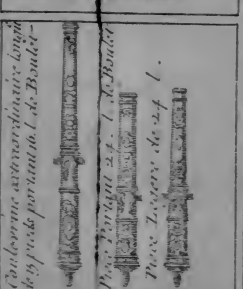 Coulevrine extraordinaire longue
de 15 pieds portant 16 l. de Boulet
Piece Portant 24. l. de Boulet
Piece Légère de 24 l.